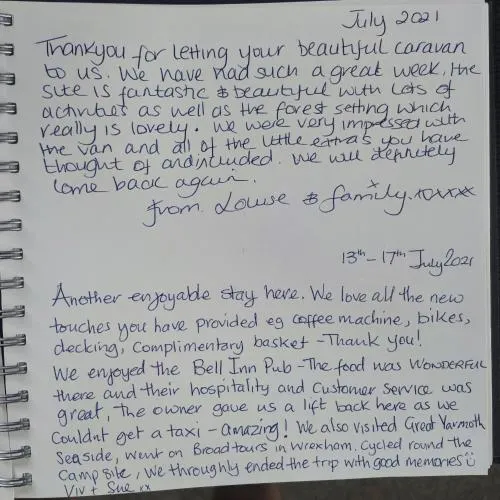 July 2021
Thankyou for letting your beautiful caravan
to us. We have had such a great week, the
site is fantastic & beautiful with lots of
activities as well as the forest setting which
really is lovely. We were very impressed with
the van and all of the little extras you have
thought of and included. We will definitely
come back again.
from. Louise & family. xxxxx
13th - 17th July 2021
Another enjoyable stay here. We love all the new
touches you have provided eg coffee machine, bikes,
decking, Complimentary basket - Thank you!
We enjoyed the Bell Inn Pub - The food was WONDERFUL
there and their hospitality and Customer Service was
great, the owner gave us a lift back here as we
Couldnt get a taxi - amazing! We also visited Great Yarmoth
Seaside, Went on Broad tours in Wrexham. Cycled round the
Camp site, We throughly ended the trip with good memories ☺
Viv + Sue xx